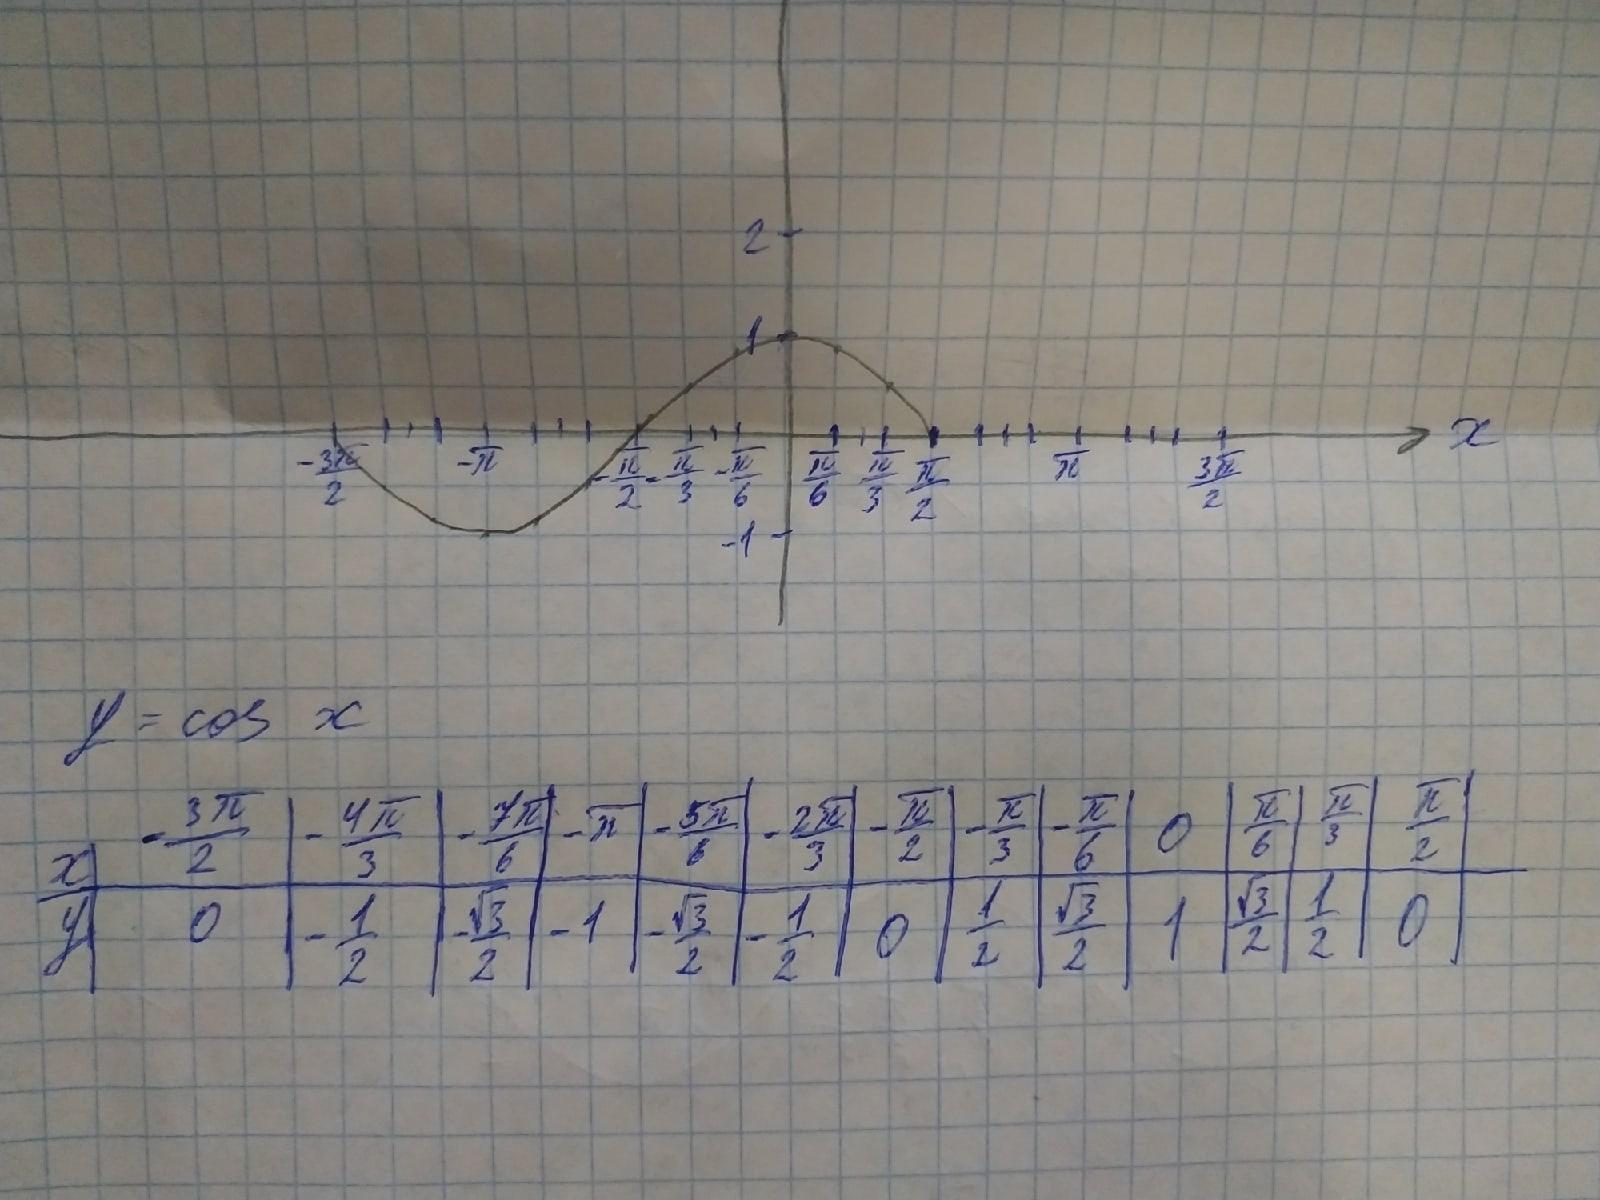 2
1
x
-3π/2 -π -π/2 -π/3 -π/6 π/6 π/3 π/2 π 3π/2
-1
y = cos x
x -3π/2 -4π/3 -7π/6 -π -5π/6 -2π/3 -π/2 -π/3 -π/6 0 π/6 π/3 π/2
y 0 -1/2 -√3/2 -1 -√3/2 -1/2 0 1/2 √3/2 1 √3/2 1/2 0